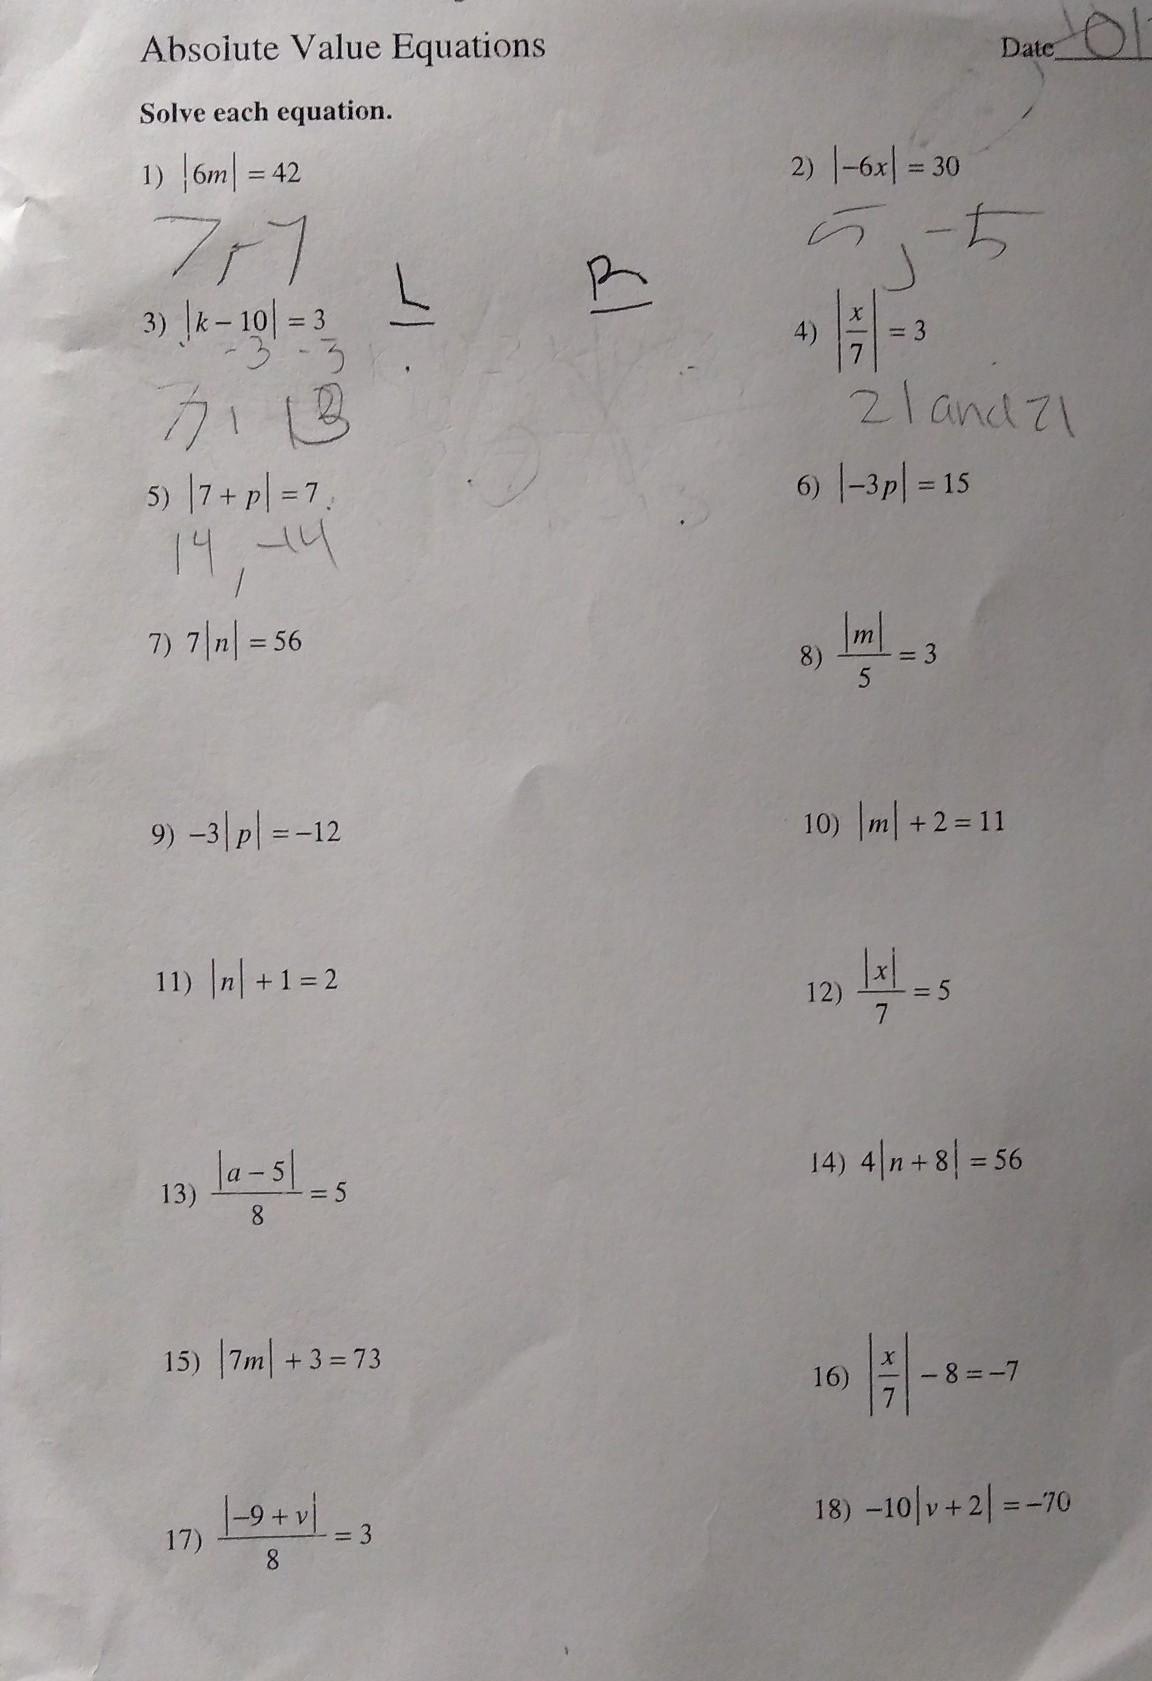 Absolute Value Equations
Date
Solve each equation.
1) |6m| = 42
2) |-6x| = 30
7, -7
5, -5
L
R
3) |k - 10| = 3
4) |x/7| = 3
-3 -3
7, 13
21 and 21
5) |7 + p| = 7
6) |-3p| = 15
14, -14
7) 7|n| = 56
8) |m|/5 = 3
9) -3|p| = -12
10) |m| + 2 = 11
11) |n| + 1 = 2
12) |x|/7 = 5
13) |a - 5|/8 = 5
14) 4|n + 8| = 56
15) |7m| + 3 = 73
16) |x/7| - 8 = -7
17) |-9 + v|/8 = 3
18) -10|v + 2| = -70